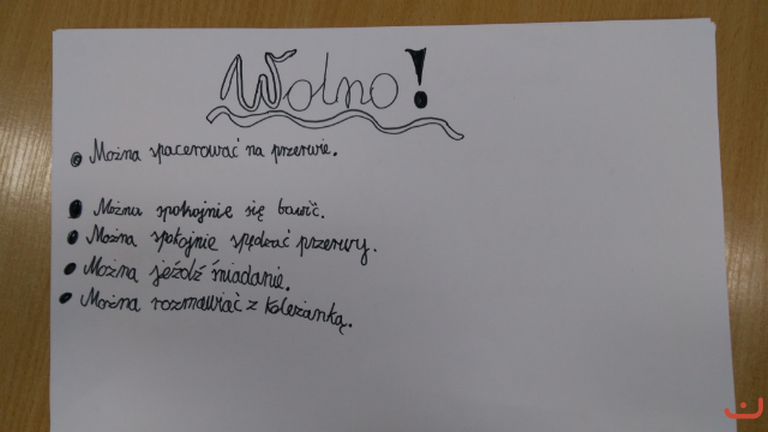 Wolno!
Można spacerować na przerwie.
Można spokojnie się bawić.
Można spokojnie spędzać przerwy.
Można jeźdź śniadanie.
Można rozmawiać z koleżanką.